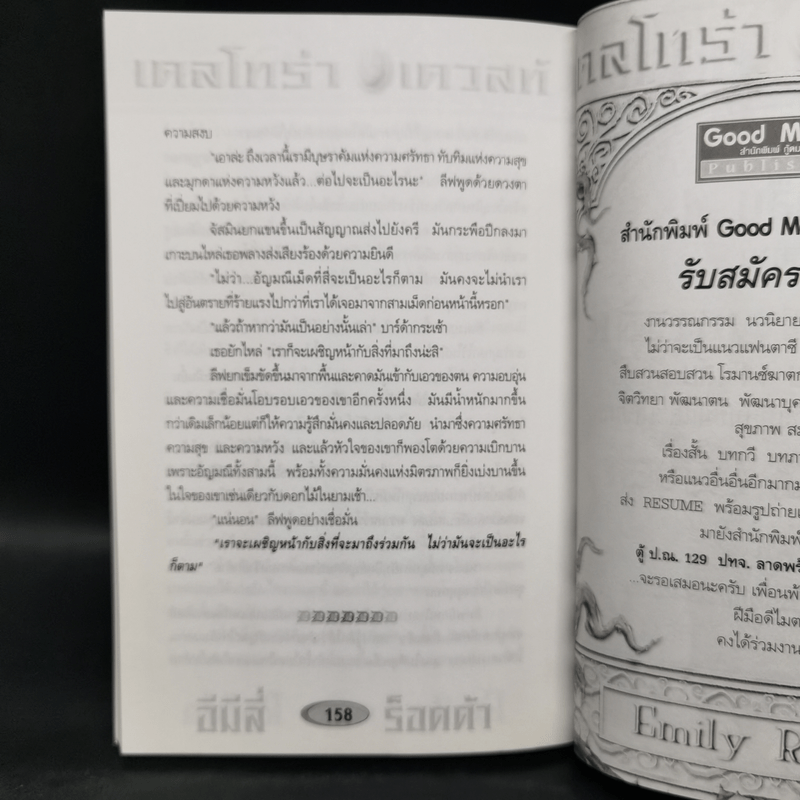 เดลโทร่า เควสท์
ความสงบ
"เอาล่ะ ถึงเวลานี้เรามีบุษราคัมแห่งความศรัทธา ทับทิมแห่งความสุข
และมุกดาแห่งความหวังแล้ว...ต่อไปจะเป็นอะไรนะ" ลีฟพูดด้วยดวงตา
ที่เปี่ยมไปด้วยความหวัง
จัสมินยกแขนขึ้นเป็นสัญญาณส่งไปยังครี มันกระพือปีกลงมา
เกาะบนไหล่เธอพลางส่งเสียงร้องด้วยความยินดี
"ไม่ว่า...อัญมณีเม็ดที่สี่จะเป็นอะไรก็ตาม มันคงจะไม่นำเรา
ไปสู่อันตรายที่ร้ายแรงไปกว่าที่เราได้เจอมาจากสามเม็ดก่อนหน้านี้หรอก"
"แล้วถ้าหากว่ามันเป็นอย่างนั้นเล่า" บาร์ด้ากระเซ้า
เธอยักไหล่ "เราก็จะเผชิญหน้ากับสิ่งที่มาถึงน่ะสิ"
ลีฟยกเข็มขัดขึ้นมาจากพื้นและคาดมันเข้ากับเอวของตน ความอบอุ่น
และความเชื่อมั่นโอบรอบเอวของเขาอีกครั้งหนึ่ง มันมีน้ำหนักมากขึ้น
กว่าเดิมเล็กน้อยแต่ก็ให้ความรู้สึกมั่นคงและปลอดภัย นำมาซึ่งความศรัทธา
ความสุข และความหวัง และแล้วหัวใจของเขาก็พองโตด้วยความเบิกบาน
เพราะอัญมณีทั้งสามนี้ พร้อมทั้งความมั่นคงแห่งมิตรภาพก็ยิ่งเบ่งบานขึ้น
ในใจของเขาเช่นเดียวกับดอกไม้ในยามเช้า...
"แน่นอน" ลีฟพูดอย่างเชื่อมั่น
"เราจะเผชิญหน้ากับสิ่งที่จะมาถึงร่วมกัน ไม่ว่ามันจะเป็นอะไร
ก็ตาม"
อีมิลี่ 158 ร็อดด้า
เดลโทร่า
Good M
สำนักพิมพ์ กู้ดม
Publis
สำนักพิมพ์ Good M
รับสมัคร
งานวรรณกรรม นวนิยาย
ไม่ว่าจะเป็นแนวแฟนตาซี
สืบสวนสอบสวน โรมานซ์ฆาตก
จิตวิทยา พัฒนาตน พัฒนาบุค
สุขภาพ
เรื่องสั้น บทกวี
หรือแนวอื่นอื่นอีกมากม
ส่ง RESUME พร้อมรูปถ่าย
มายังสำนักพิมพ์
ตู้ ป.ณ. 129 ปทจ. ลาดพร้
...จะรอเสมอนะครับ เพื่อนพ้
ฝีมือดีไม
คงได้ร่วมงาน
Emily R